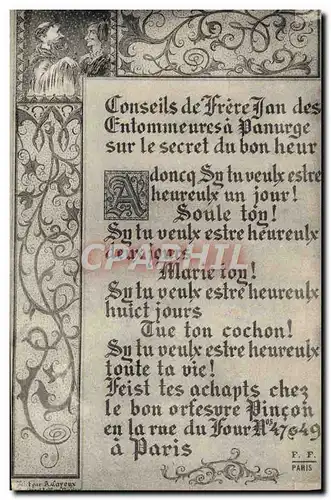 Conseils de Frère Jan des
Entommeures à Panurge
sur le secret du bon heur
Adoncq Sy tu veulx estre
heureulx un jour!
Soule toy!
Sy tu veulx estre heureulx
deux jours
Marie toy!
Sy tu veulx estre heureulx
huict jours
Tue ton cochon!
Sy tu veulx estre heureulx
toute ta vie!
Feist tes achapts chez
le bon orfesvre Pinçon
en la rue du Four Nos 47 & 49
à Paris
F. F.
PARIS
CPARAMA